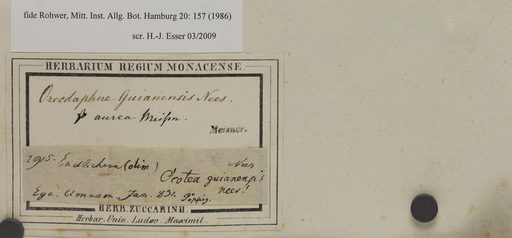 fide Rohwer, Mitt. Inst. Allg. Bot. Hamburg 20: 157 (1986)
scr. H.-J. Esser 03/2009
HERBARIUM REGIUM MONACENSE.
Oreodaphne Guianensis Nees.
β aurea Meisn.
Meisner.
2915. Endlichera (olim.) Nees
Ocotea guianensis
nees!
Ega. Amazon. Jan. 831. Pöppig.
HERB. ZUCCARINII.
Herbar. Univ. Ludov. Maximil.